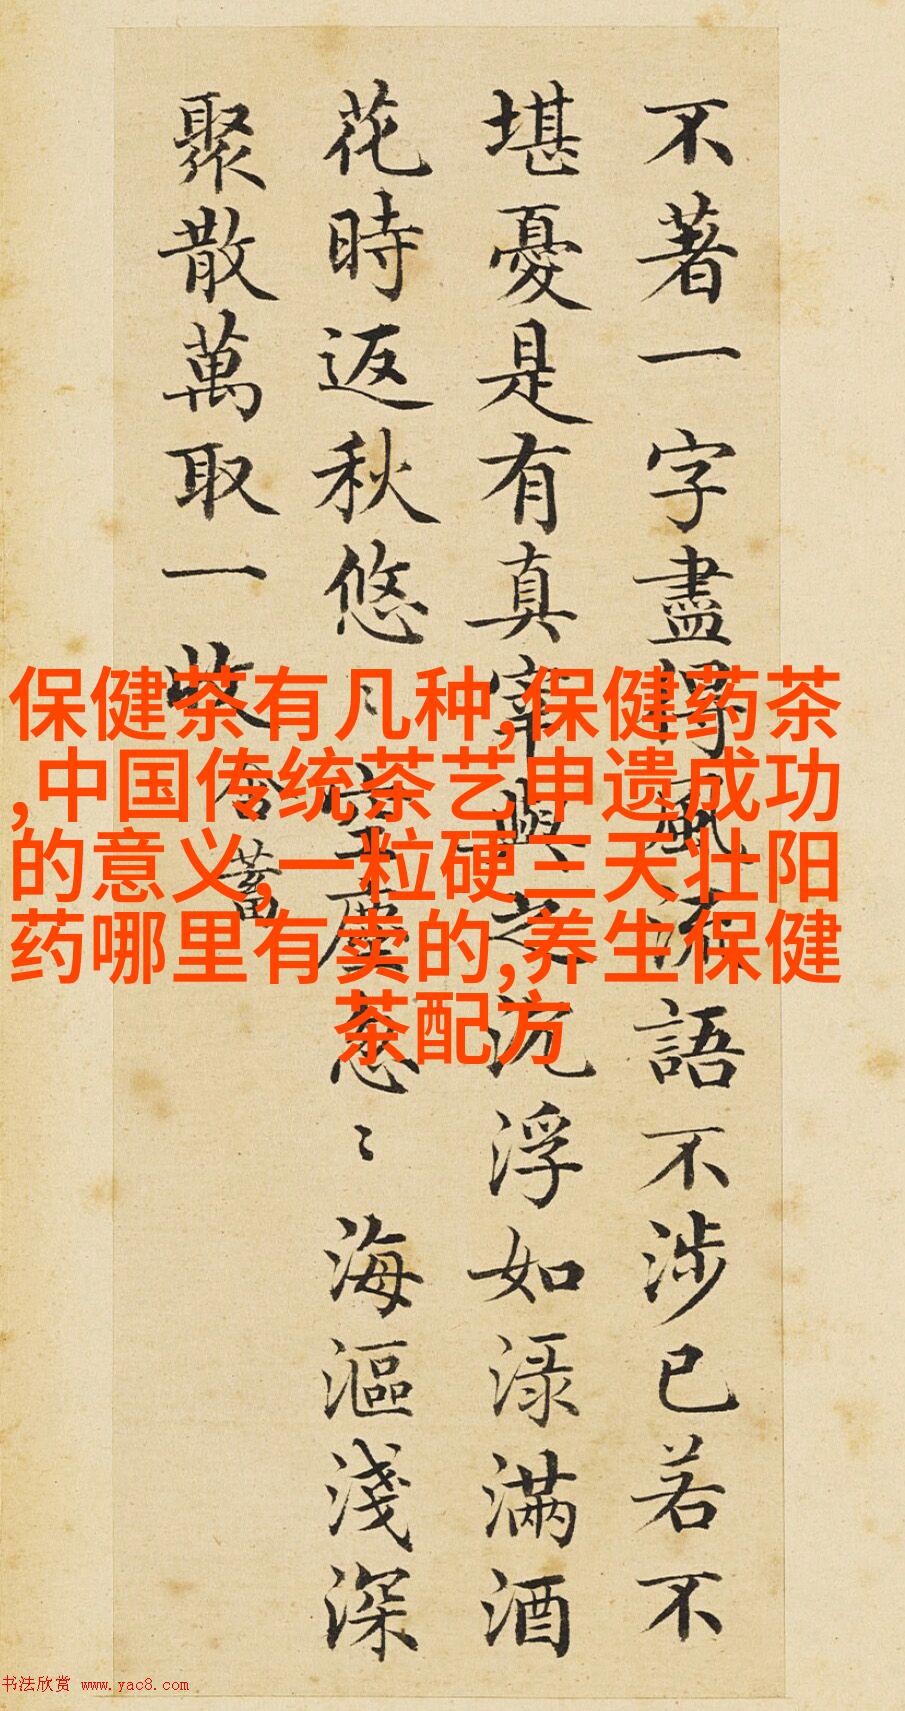 不著一字盡得風流語不涉已若不
堪憂是有真宰與之沉浮如渌滿酒
花時返秋悠〻空塵忽〻海漚淺深
聚散萬取一收 含蓄
保健茶有几种,保健药茶
,中国传统茶艺申遗成功
的意义,一粒硬三天壮阳
药哪里有卖的,养生保健
茶配方
书法欣赏 www.yac8.com